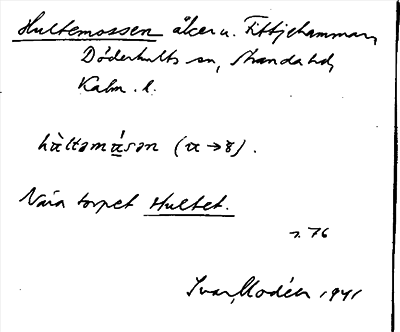 Hultemossen åker u. Fittjehammar,
Döderhults sn, Stranda hd,
Kalm. l.
hùltəmɑ́sən (ɑ→8).
Nära torpet Hultet.
s. 76
Ivar Modéer 1941